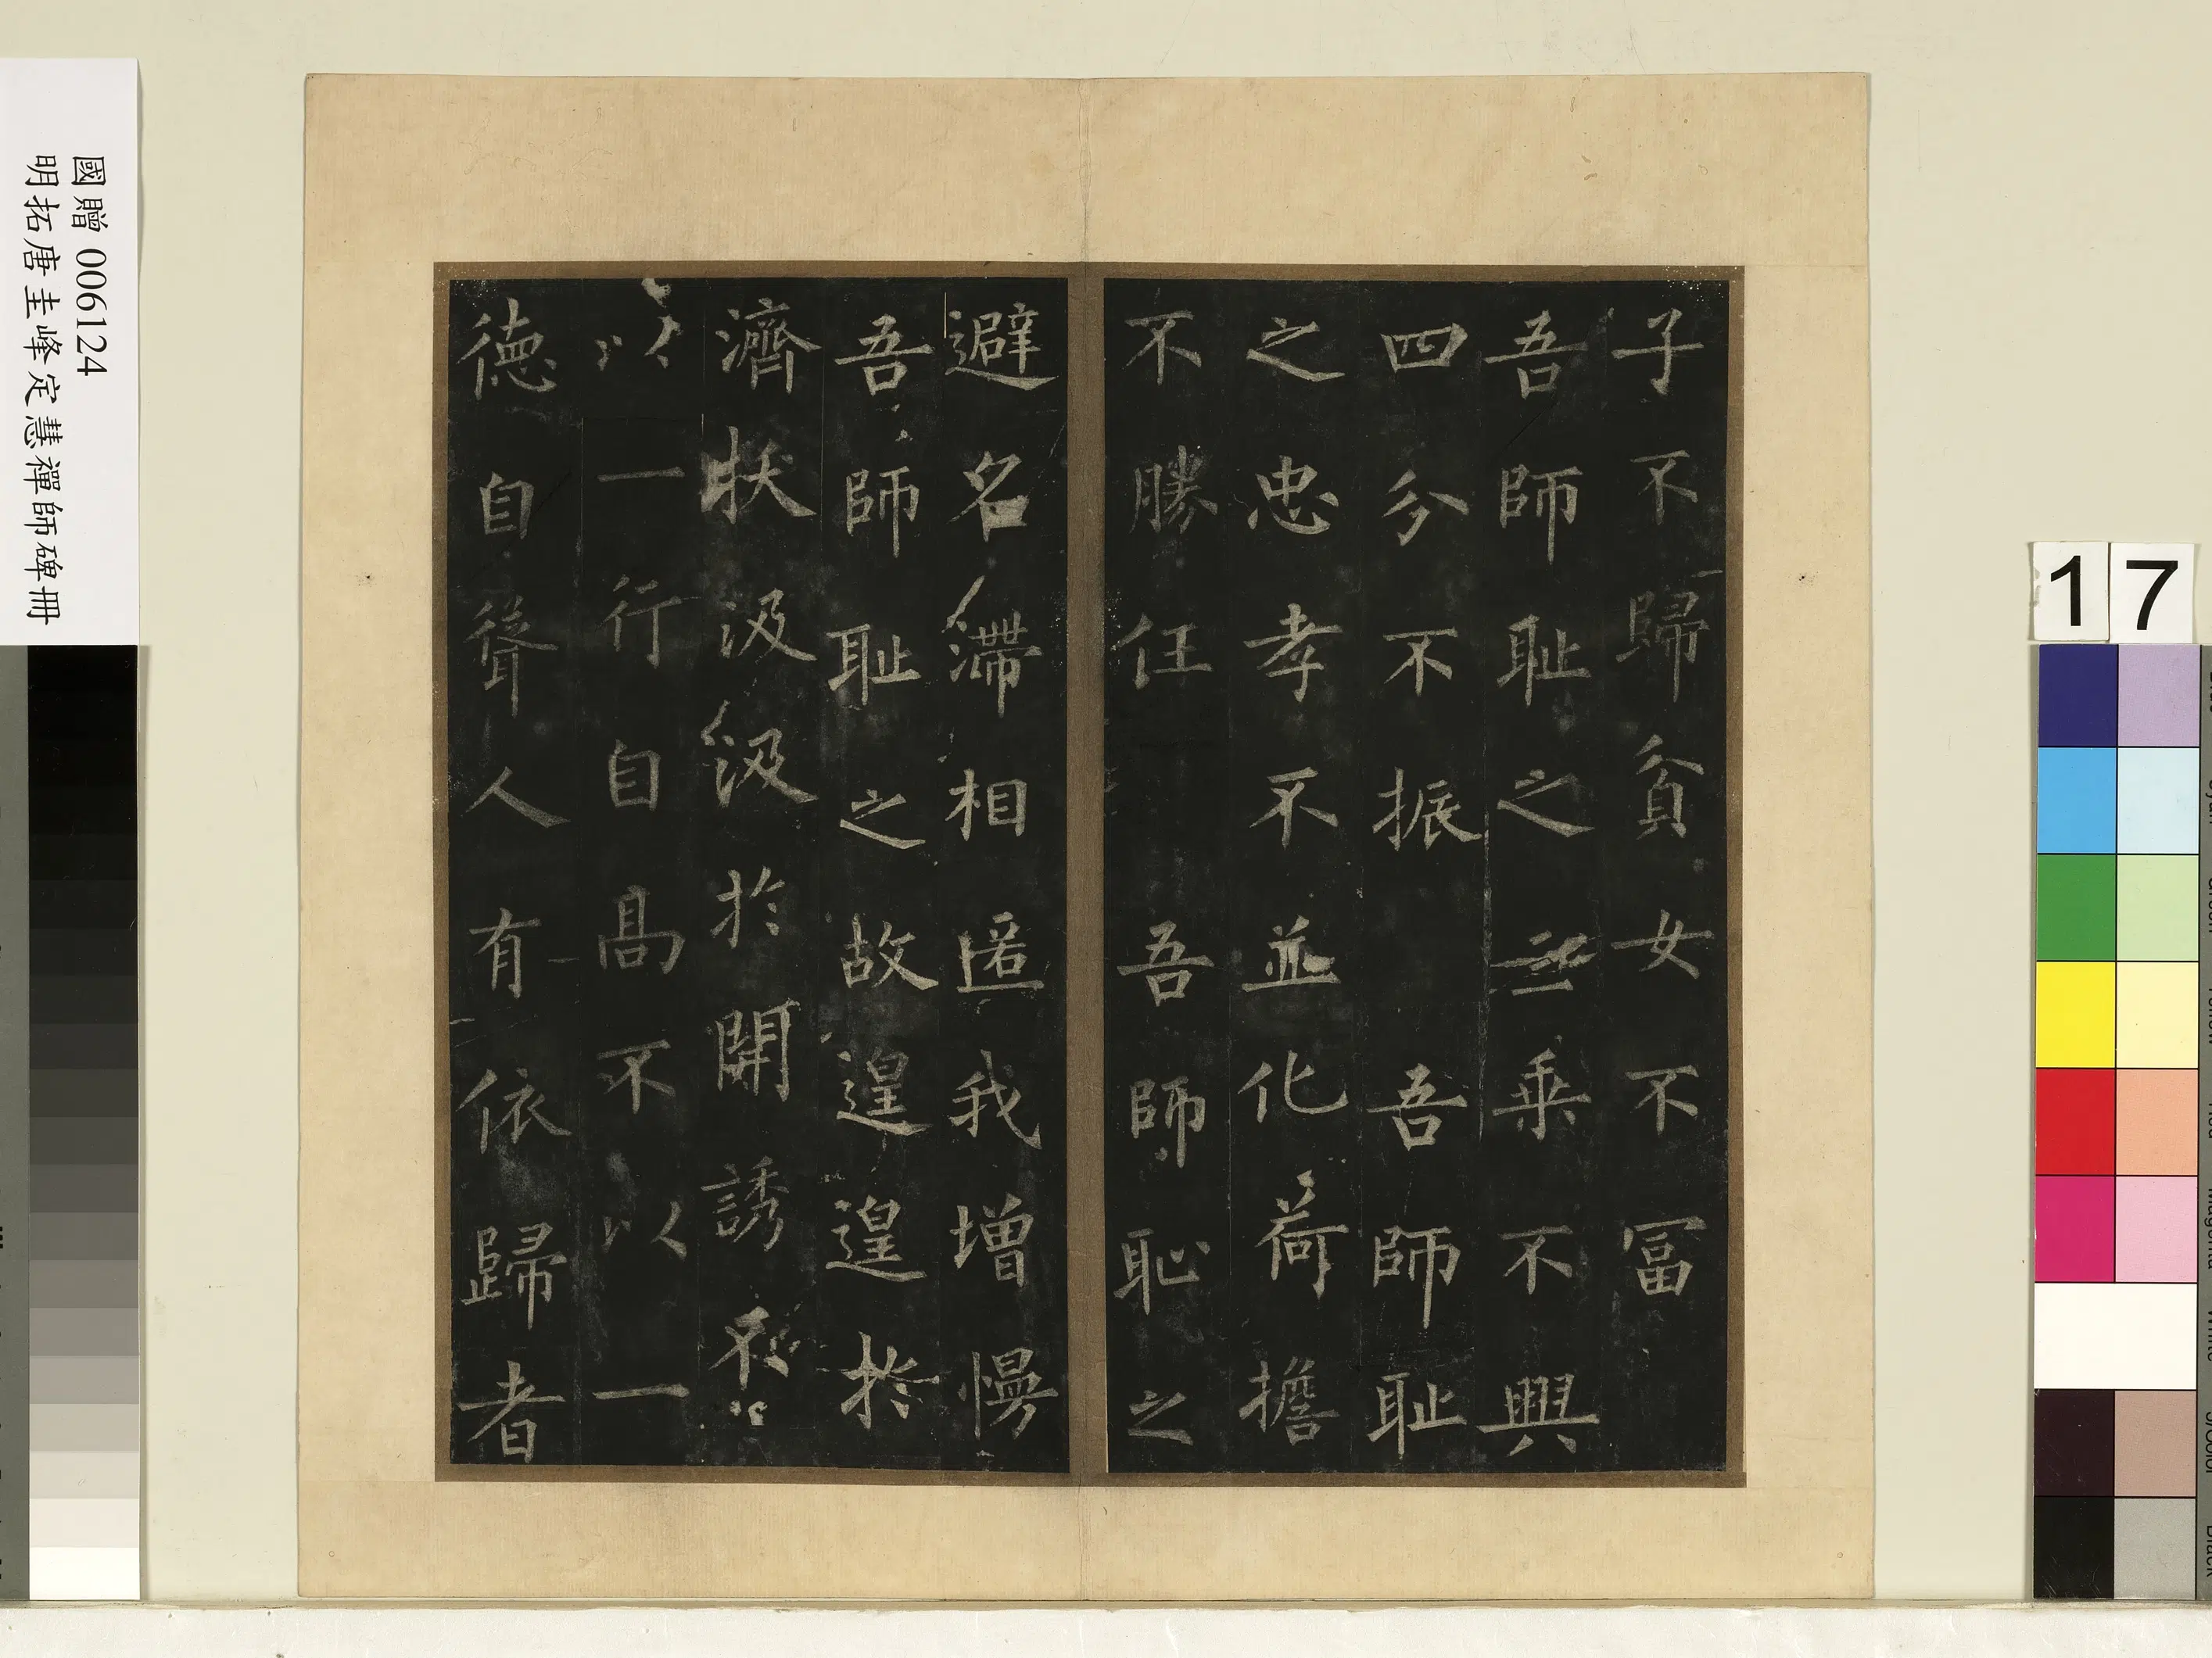 子不歸貧女不冨
吾師耻之三乗不興
四分不振吾師耻
之忠孝不並化荷擔
不勝任吾師恥之
避名滯相匿我增慢
吾師耻之故遑遑扵
濟㧞汲汲於開誘
以一行自高不以一
德自聳人有依歸者
國贈 006124
明拓唐圭峰定慧禪師碑冊
17